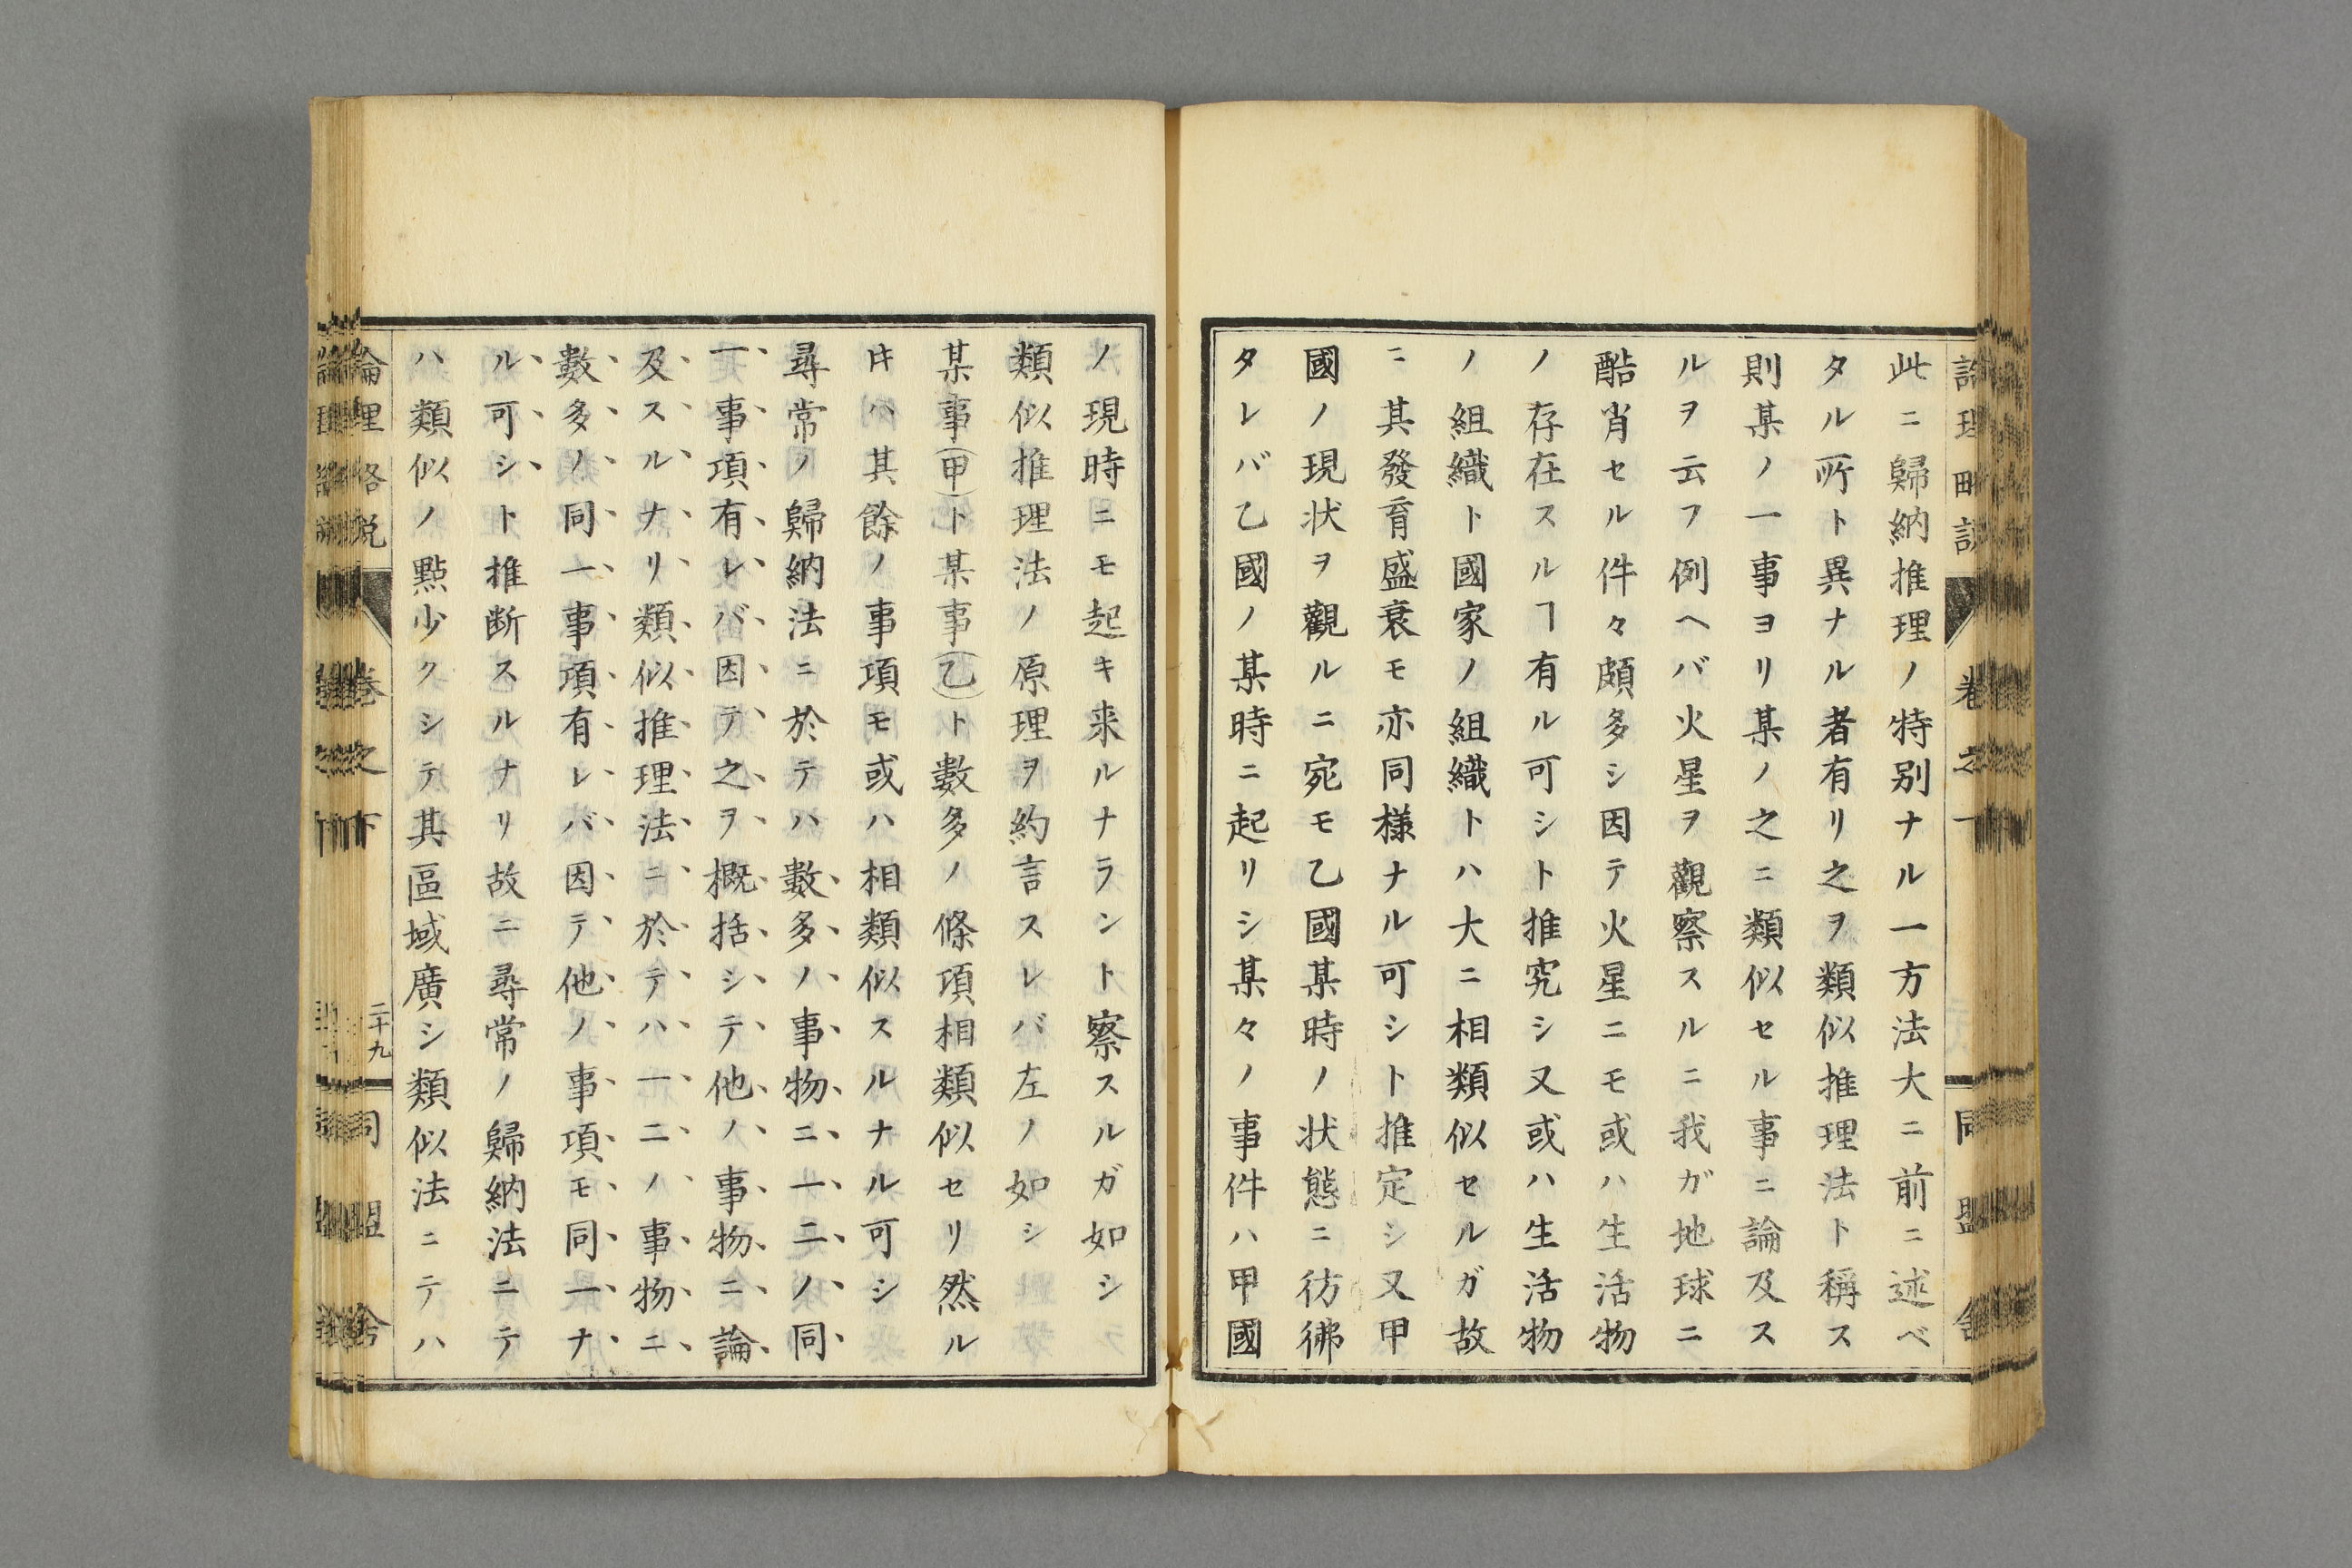 此ニ歸納推理ノ特别ナル一方法大ニ前ニ述ベ
タル所ト異ナル者有リ之ヲ類似推理法ト稱ス
則某ノ一事ヨリ某ノ之ニ類似セル事ニ論及ス
ルヲ云フ例ヘバ火星ヲ觀察スルニ我ガ地球ニ
酷肖セル件々頗多シ因テ火星ニモ或ハ生活物
ノ存在スルヿ有ル可シト推究シ又或ハ生活物
ノ組織ト國家ノ組織トハ大ニ相類似セルガ故
ニ其發育盛衰モ亦同様ナル可シト推定シ又甲
國ノ現状ヲ觀ルニ宛モ乙國某時ノ状態ニ彷彿
タレバ乙國ノ某時ニ起リシ某々ノ事件ハ甲國
ノ現時ニモ起キ来ルナラント察スルガ如シ
類似推理法ノ原理ヲ約言スレバ左ノ如シ
某事(甲)ト某事(乙)ト數多ノ條項相類似セリ然ル
𪜈ハ其餘ノ事項モ或ハ相類似スルナル可シ
尋常ノ歸納法ニ於テハ數多ノ事物ニ一二ノ同
一事項有レバ因テ之ヲ概括シテ他ノ事物ニ論
及スルナリ類似推理法ニ於テハ一二ノ事物ニ
數多ノ同一事項有レバ因テ他ノ事項モ同一ナ
ル可シト推断スルナリ故ニ尋常ノ歸納法ニテ
ハ類似ノ點少クシテ其區域廣シ類似法ニテハ
論理略説 卷之下 二十九 同盟舎